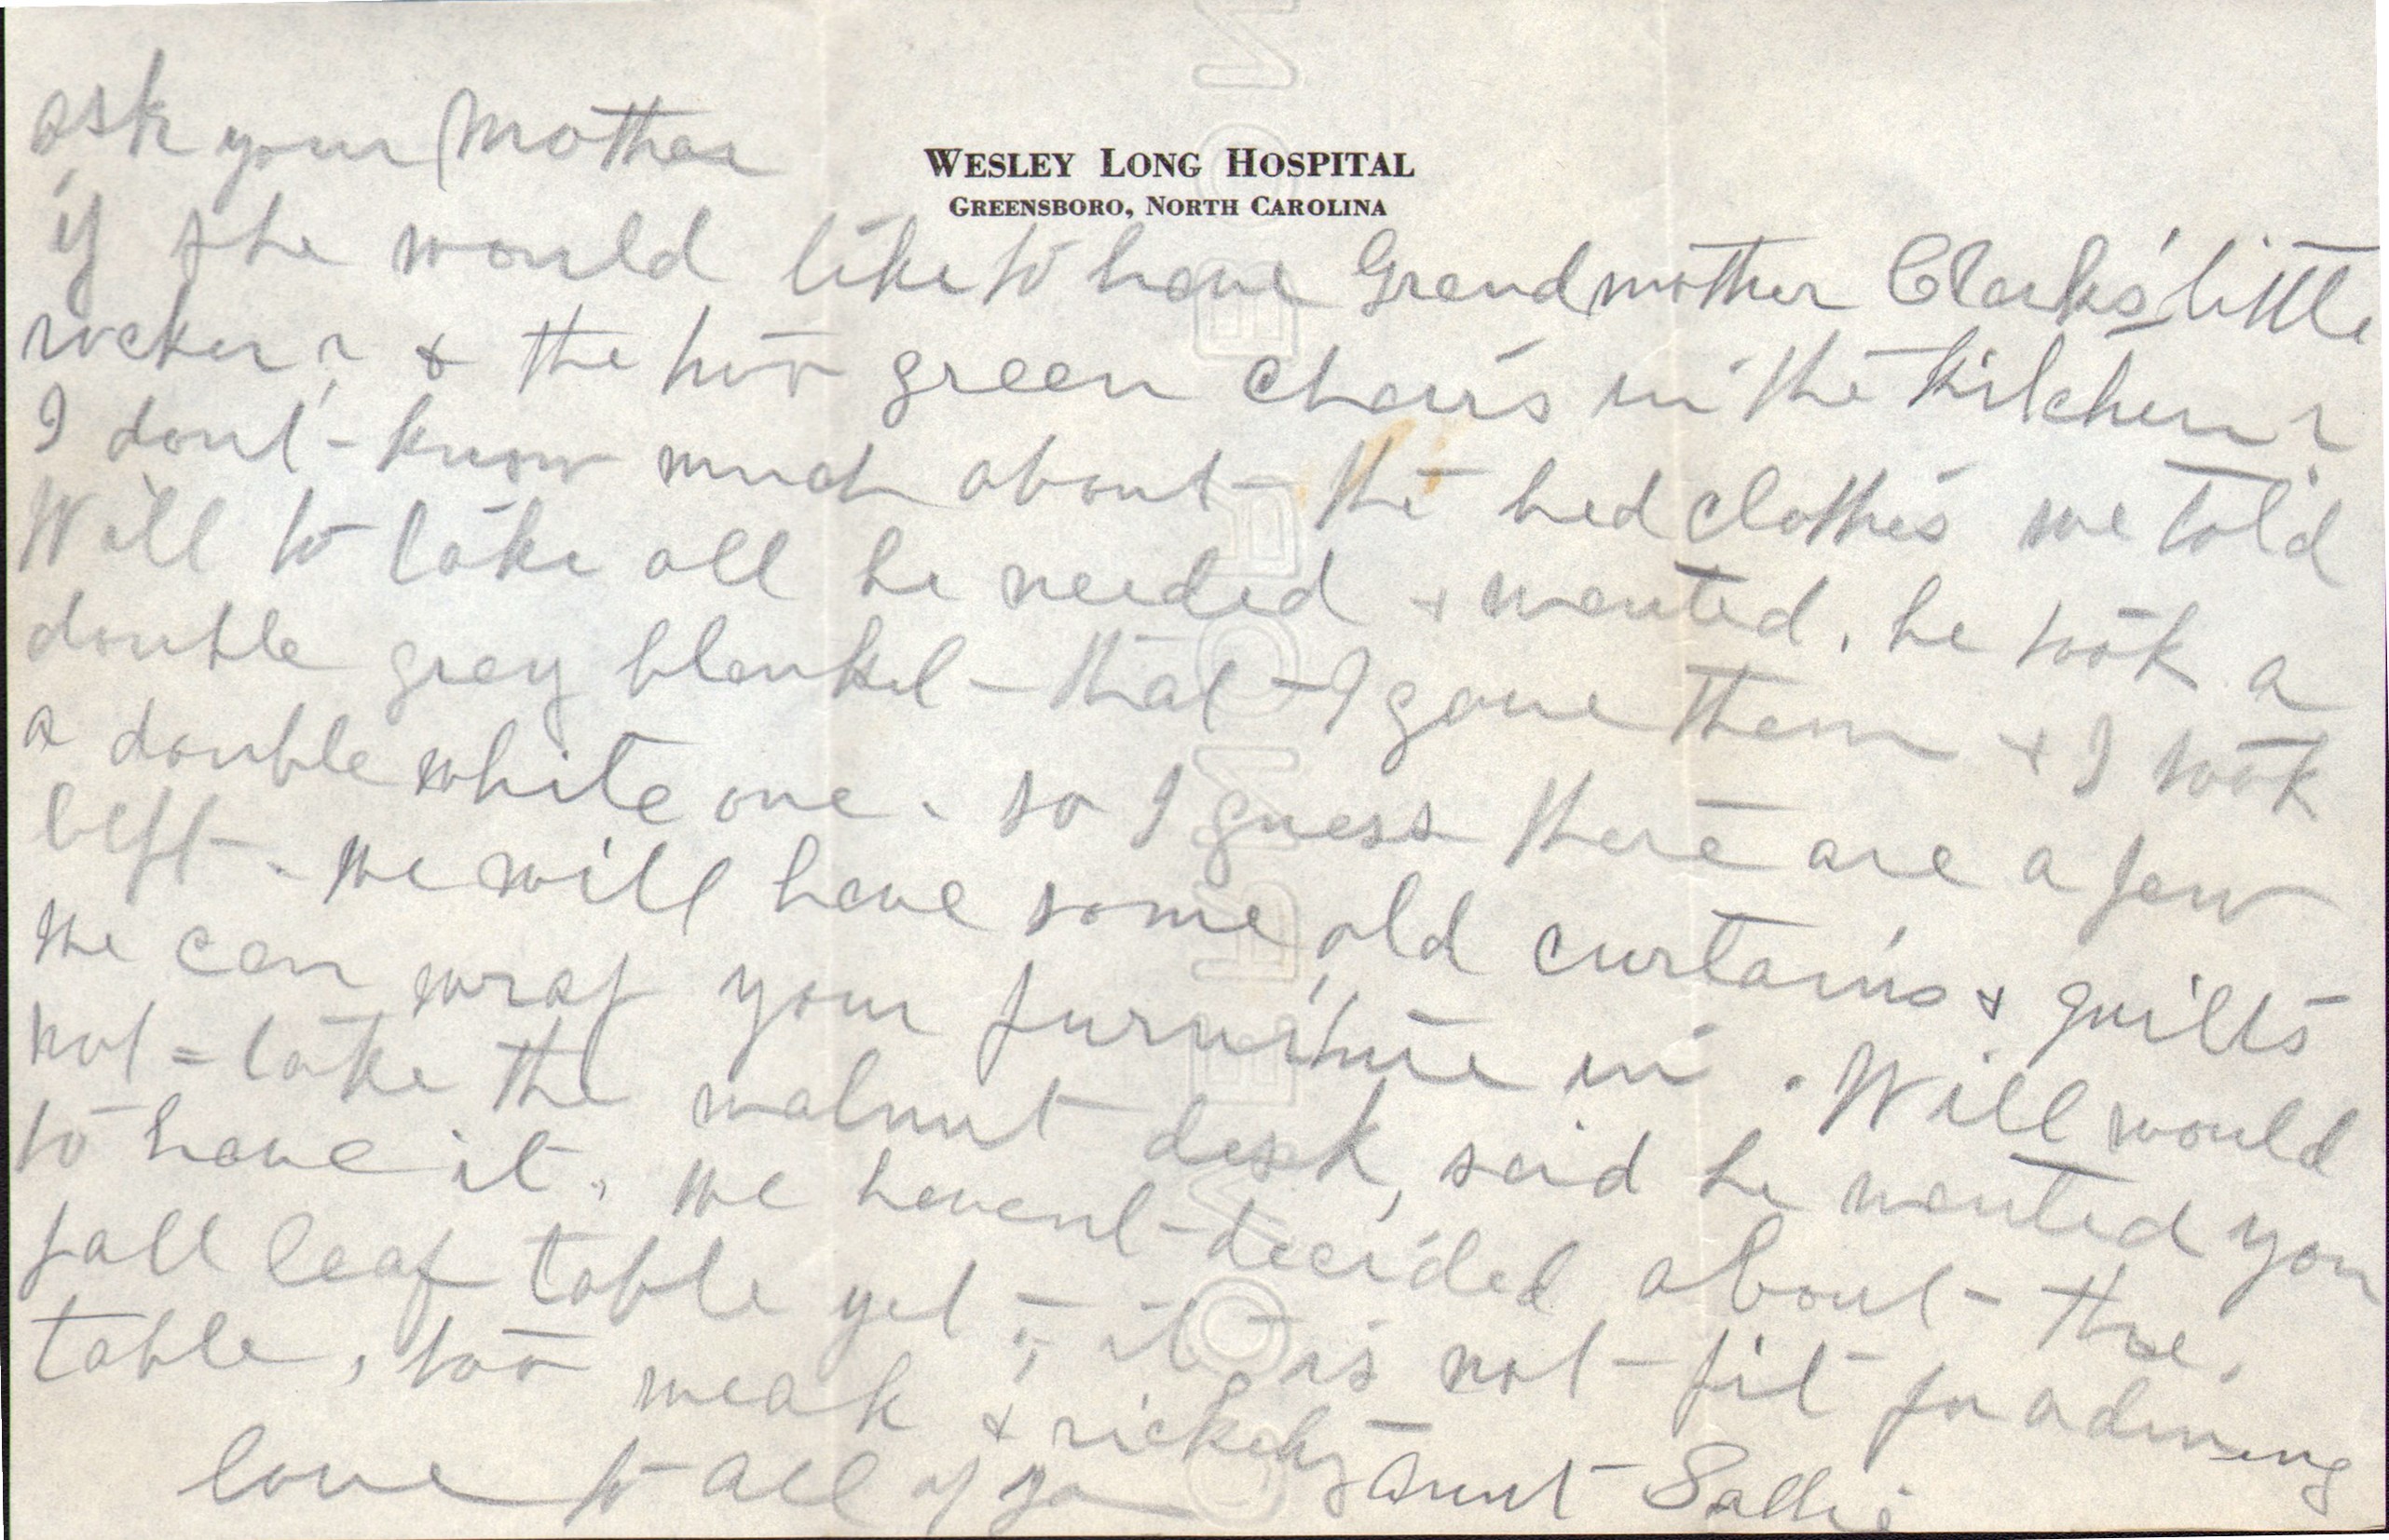 ask your Mother
WESLEY LONG HOSPITAL
GREENSBORO, NORTH CAROLINA
if she would like to have Grandmother Clark's little
rocker? & the two green chairs in the kitchen?
I dont - know much about - the bed clothes we told
Will to take all he needed + wanted. he took a
double grey blanket - that - I gave them + I took
a double white one. so I guess there are a few
left - . We will have some old curtains & quilts
We can wrap your furniture in . Will would
not = take the walnut desk, said he wanted you
to have it. We havent - decided about - the
fall leaf table yet - ; it is not - fit for a dining
table, too weak & rickety
love to all of you Aunt Sallie